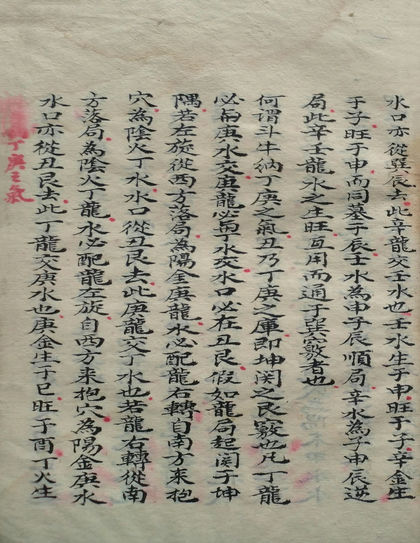 水口亦從巽辰去此辛龍交壬水也壬水生于申旺于子辛金生
于子旺于申而同墓于辰壬水為申子辰順局辛水為子申辰逆
局此辛壬龍水之生旺互用而通于巽竅者也
何謂斗牛納丁庚之氣丑乃丁庚之庫即坤之艮竅也凡丁龍
必需庚水交庚龍必需丁水交水口必在丑艮假如龍局起于坤
隅若左旋從西方落局為陽金庚龍水必配龍右轉自南方來抱
穴為陰火丁水水口從丑艮去此庚龍交丁水也若龍右轉從南
方落局為陰火丁龍水必配龍左旋自西方來抱穴為陽金庚水
水口亦從丑艮去此丁龍交庚水也庚金生于巳旺于酉丁火生
丁庚之氣